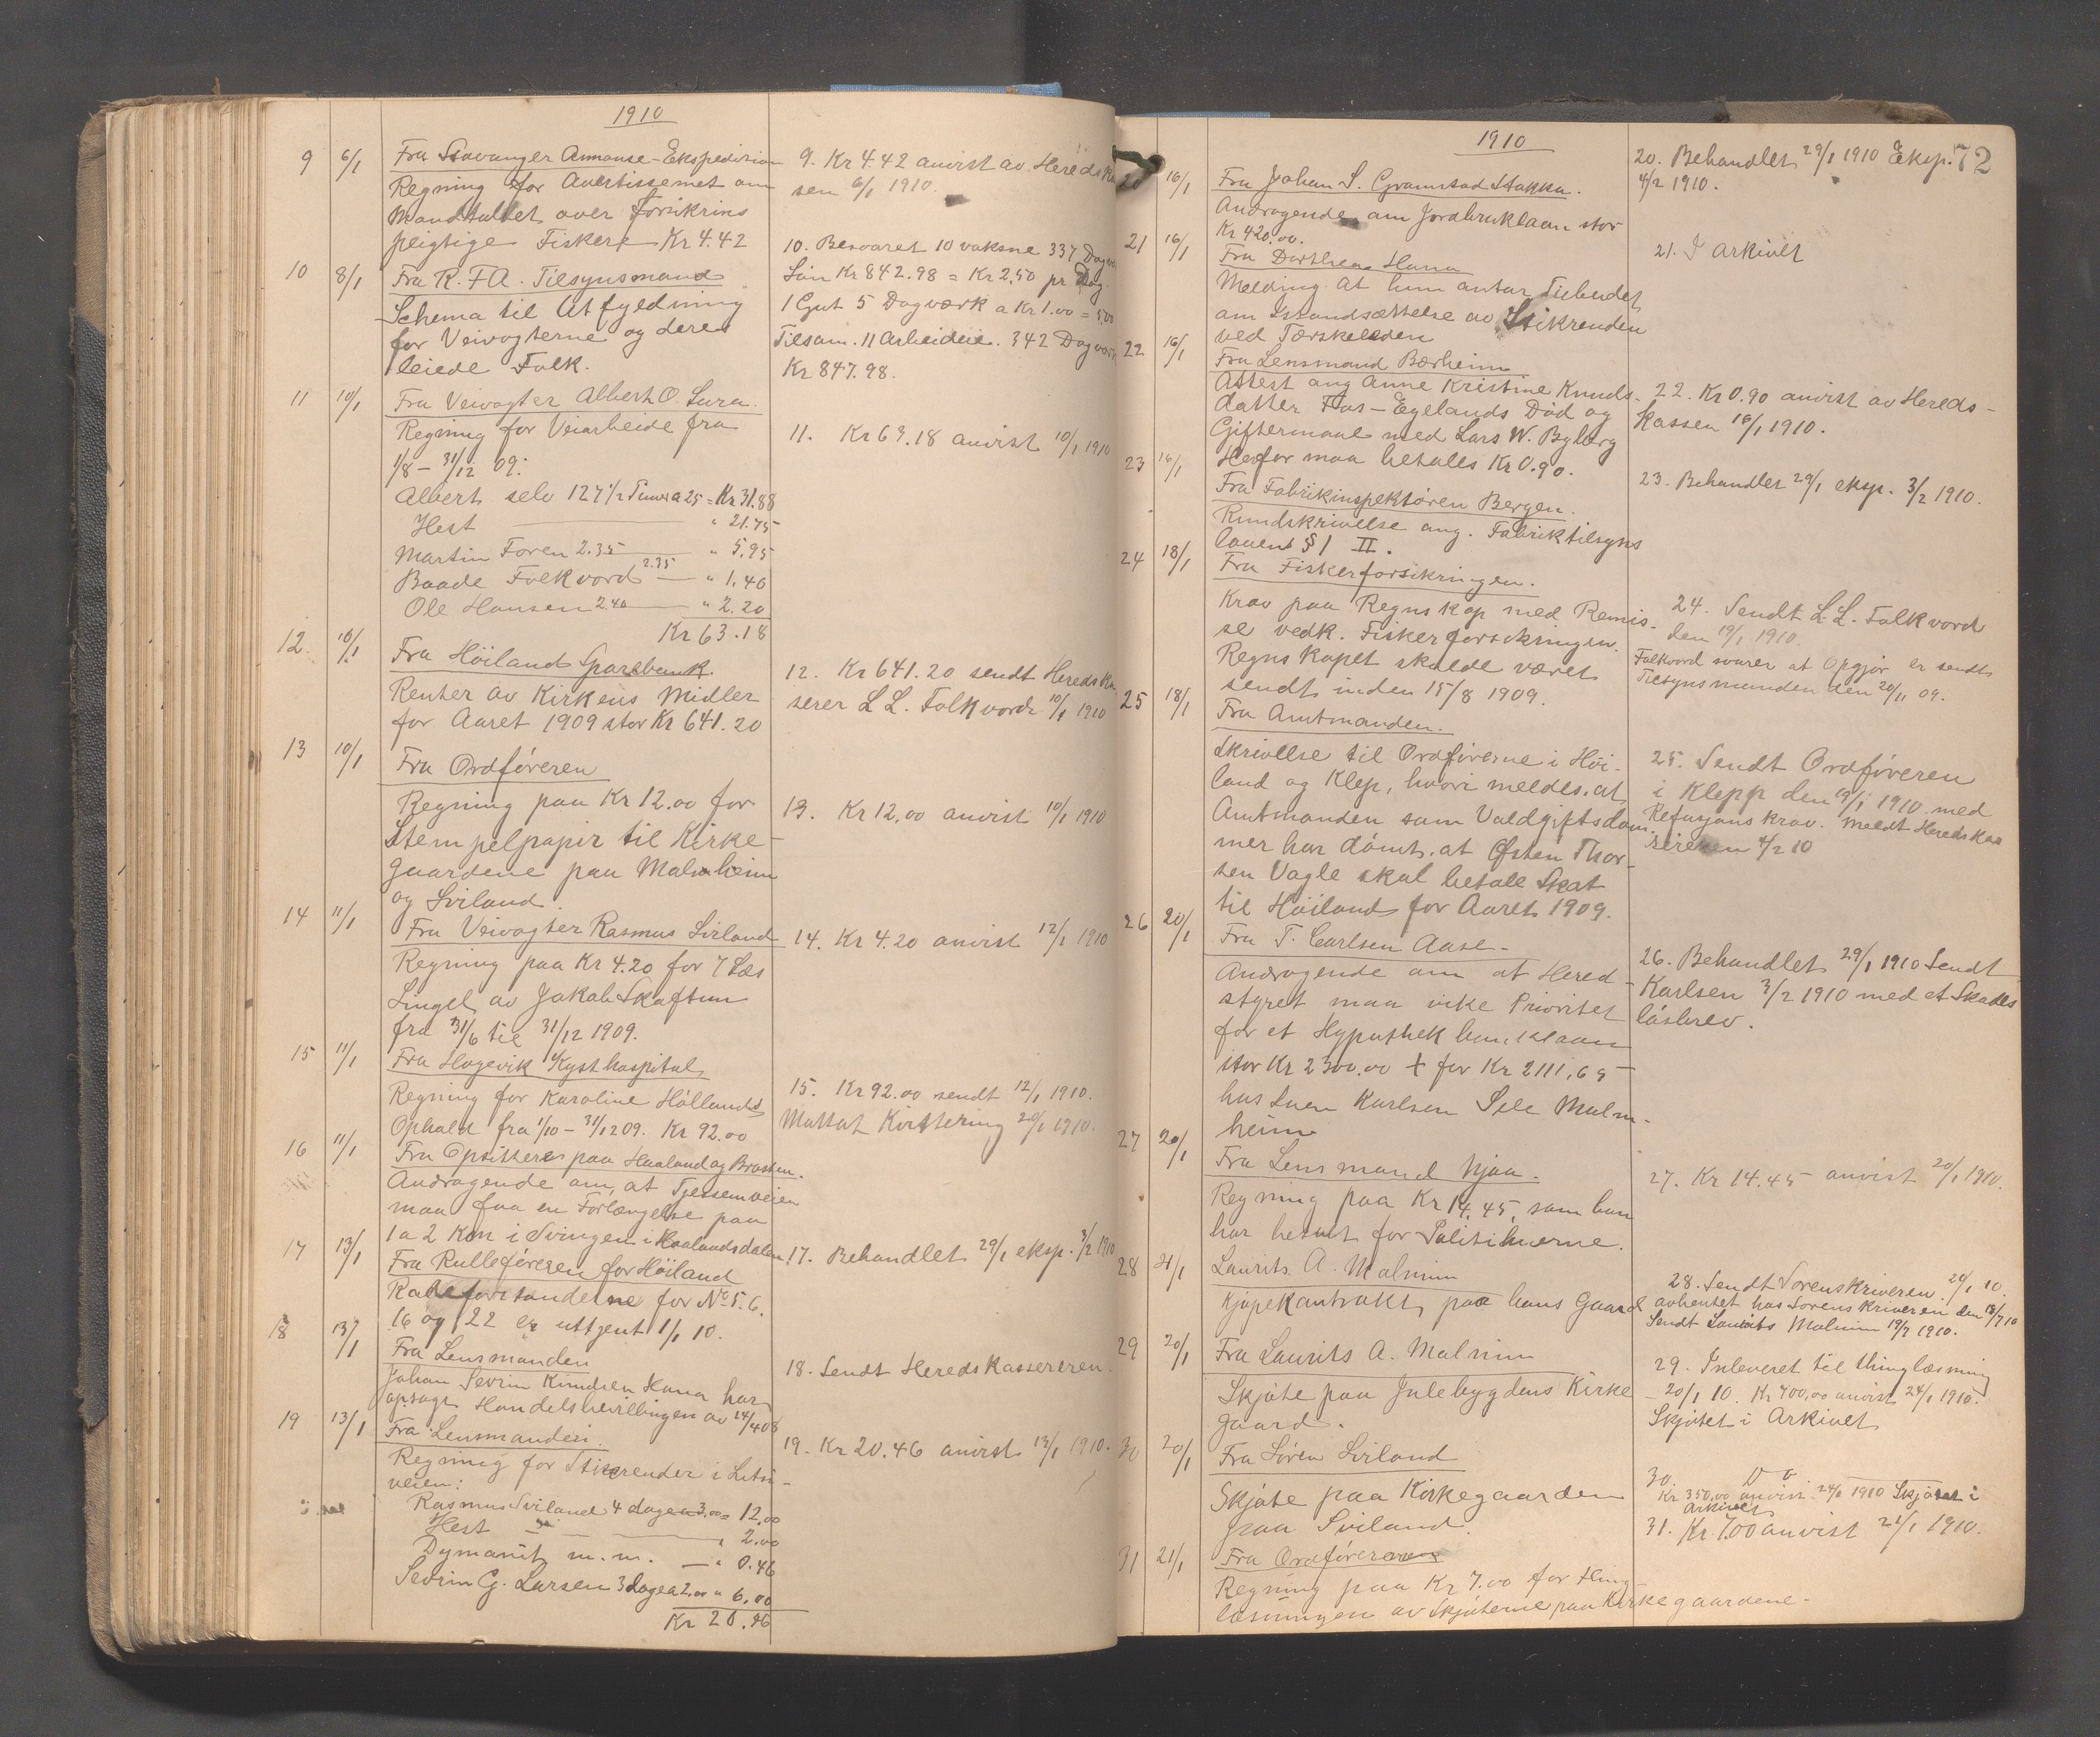 1910
9 6/1 Fra Stavanger Annonse-Ekspedision
Regning for Avertissemet om
Mandtallet over forsikrins
pligtige Fiskere Kr 4.42
9. Kr 4.42 anvist av Hereds
sen 6/1 1910.
10 8/1 Fra R. F A. Tilsynsmand
Schema til Utfyldning
for Veivogterne og deres
leiede Folk.
10. Besvaret 10 voksne 337 Dagv
Løn Kr 842.98 = Kr 2,50 pr Dag.
1 Gut 5 Dagværk a Kr 1.00 = 5,00
Tilsam. 11 Arbeidere. 342 Dagværk
Kr 847.98.
11 10/1 Fra Veivogter Albert O. Lura.
Regning for Veiarbeide fra
1/8 - 31/12 09:
Albert selv 127 1/2 Timer a 25 = Kr 31.88
Hest " 21.75
Martin Foren 2.35 " 5.95
Baade Folkvord 2.35 " 1.40
Ole Hansen 2.40 " 2.20
Kr 63.18
11. Kr 63.18 anvist 10/1 1910
12. 10/1 Fra Höiland Sparebank.
Renter av Kirkens Midler
for Aaret 1909 stor Kr 641.20
12. Kr 641.20 sendt Hereds
serer L L. Folkvord 10/1 1910
13 10/1 Fra Ordföreren
Regning paa Kr 12.00 for
Stempelpapir til Kirke-
gaardene paa Malmheim
og Sviland.
13. Kr 12,00 anvist 10/1 1910
14 11/1 Fra Veivogter Rasmus Sviland
Regning paa Kr 4.20 for 7 Læs
Singel av Jakob Skaftun
fra 31/6 til 31/12 1909.
14. Kr 4.20 anvist 12/1 1910
15 11/1 Fra Hagevik Kysthospital
Regning for Karoline Höllands
Ophold fra 1/10 - 31/12 09. Kr 92.00
15. Kr 92.00 sendt 12/1 1910.
Mottat Kvittering 20/1 1910.
16 11/1 Fra Opsittere paa Haaland og Brasten.
Andragende om at Tjessemveien
maa faa en Forlængelse paa
1 a 2 Km i Svingen i Haalandsdalen
17 13/1 Fra Rulleföreren for Höiland
Rodeforstanderne for No 5. 6.
16 og 22 er uttjent 1/1 10.
17. Behandlet 29/1 eksp. 3/2 1910
18 13/1 Fra Lensmanden
Johan Sevrin Knudsen Hana har
opsagt Handelsbevillingen av 14/4 08
18. Sendt Heredskassereren.
19 13/1 Fra Lensmanden.
Regning for Stikrender i
veien:
Rasmus Sviland 4 dage a 3.00 = 12.00
Hest " 2.00
Dynamit m.m. " 0.46
Sevrin G. Larsen 3 dage a 2.00 " 6.00
Kr 20.46
19. Kr 20.46 anvist 13/1 1910.
1910
72
20 16/1 Fra Johan S. Gramstad Stokka.
Andragende om Jordbruklaan stor
Kr 420.00.
20. Behandlet 29/1 1910 Eksp.
4/2 1910.
21 16/1 Fra Dorthea Hana
Melding at hun antar Tilbudet
om Istandsættelse av Stikrenden
ved Tærskeleden
21. I arkivet
22 16/1 Fra Lensmand Bærheim
Attest ang Anne Kristine Knuds-
datter Fos-Egelands Död og
Giftermaal med Lars W. Byberg
Herfor maa betales Kr 0.90.
22. Kr 0.90 anvist av Hereds-
kassen 16/1 1910.
23 16/1 Fra Fabrikinspektören Bergen.
Rundskrivelse ang. Fabriktilsyns
lovens § 1 II.
23. Behandlet 29/1 eksp. 3/2 1910.
24 18/1 Fra Fiskerforsikringen.
Krav paa Regnskap med Remis-
se vedk. Fiskerforsikringen.
Regnskapet skulde været
sendt inden 15/8 1909.
24. Sendt L. L. Folkvord
den 19/1 1910.
Folkvord svarer at Opgjør er sendt
Tilsynsmanden den 20/11 09.
25 18/1 Fra Amtmanden.
Skrivelse til Ordförerne i Höi-
land og Klep, hvori meldes, at
Amtmanden som Voldgiftsdom-
mer har dömt, at Østen Thor-
sen Vagle skal betale Skat
til Höiland for Aaret 1909.
25. Sendt Ordföreren
i Klepp den 19/1 1910 med
Refusjons krav. Meldt Heredskas
sereren 4/2 10
26 20/1 Fra T. Carlsen Aase.
Andragende om at Hered-
styret maa vike Prioritet
for et Hypothekbanklaan
stor Kr 2300.00 + for Kr 2111,65
hos Karlsen Sele Malm-
heim
26. Behandlet 29/1 1910 Sendt
Karlsen 3/2 1910 med et Skades
lösbrev.
27 20/1 Fra Lensmand Njaa.
Regning paa Kr 14.45, som han
har betalt for Politihuerne.
27. Kr 14.45 anvist 20/1 1910.
28 21/1 Laurits A. Malmim
Kjøpekontrakt paa hans Gaard
28. Sendt Sorenskriveren 24/1 10.
avhentet hos Sorenskriveren den 18/7 10
Sendt Laurits Malmim 19/7 1910.
29 20/1 Fra Laurits A. Malmim
Skjöte paa Julebygdens Kirke
gaard.
29. Inleveret til thinglæsning
20/1 10. Kr 700,00 anvist 24/1 1910.
Skjötet i Arkivet
30 20/1 Fra Sören Sviland
Skjöte paa Kirkegaarden
paa Sviland.
30. Do
Kr 350.00 anvist 24/1 1910 Skjötet i
Arkivet
31 21/1 Fra Ordföreren
Regning paa Kr 7.00 for thing-
læsningen av Skjøterne paa Kirkegaardene.
31. Kr. 7.00 anvist 21/1 1910.